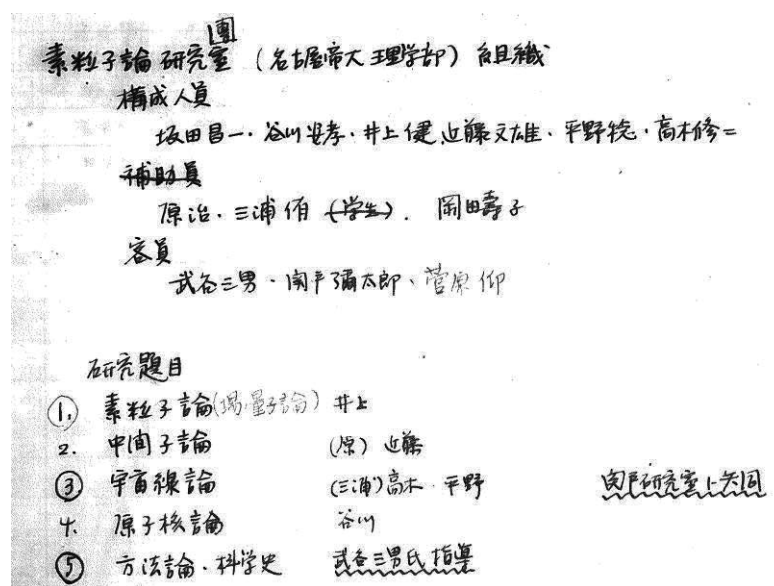 團
素粒子論研究室 (名古屋帝大理学部) 組織
構成人員
坂田昌一・谷川安孝・井上健・近藤文雄・平野稔・高木修二
補助員
原治・三浦侑 (学生)・岡田壽子
客員
武谷三男・関戸彌太郎、菅原仰
研究題目
1. 素粒子論(場.量子論) 井上
2. 中間子論 (原) 近藤
3 宇宙線論 (三浦) 高木・平野 関戸研究室ト共同
4. 原子核論 谷川
5 方法論・科学史 武谷三男氏指導